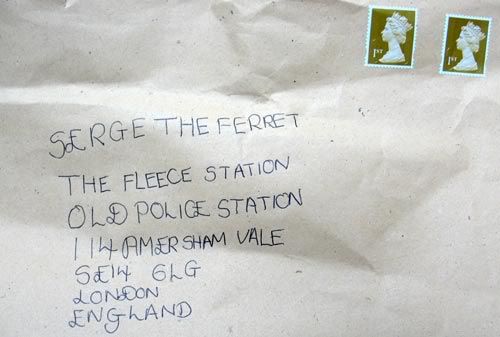 1ST 1ST
SERGE THE FERRET
THE FLEECE STATION
OLD POLICE STATION
114 AMERSHAM VALE
SE14 6LG
LONDON
ENGLAND